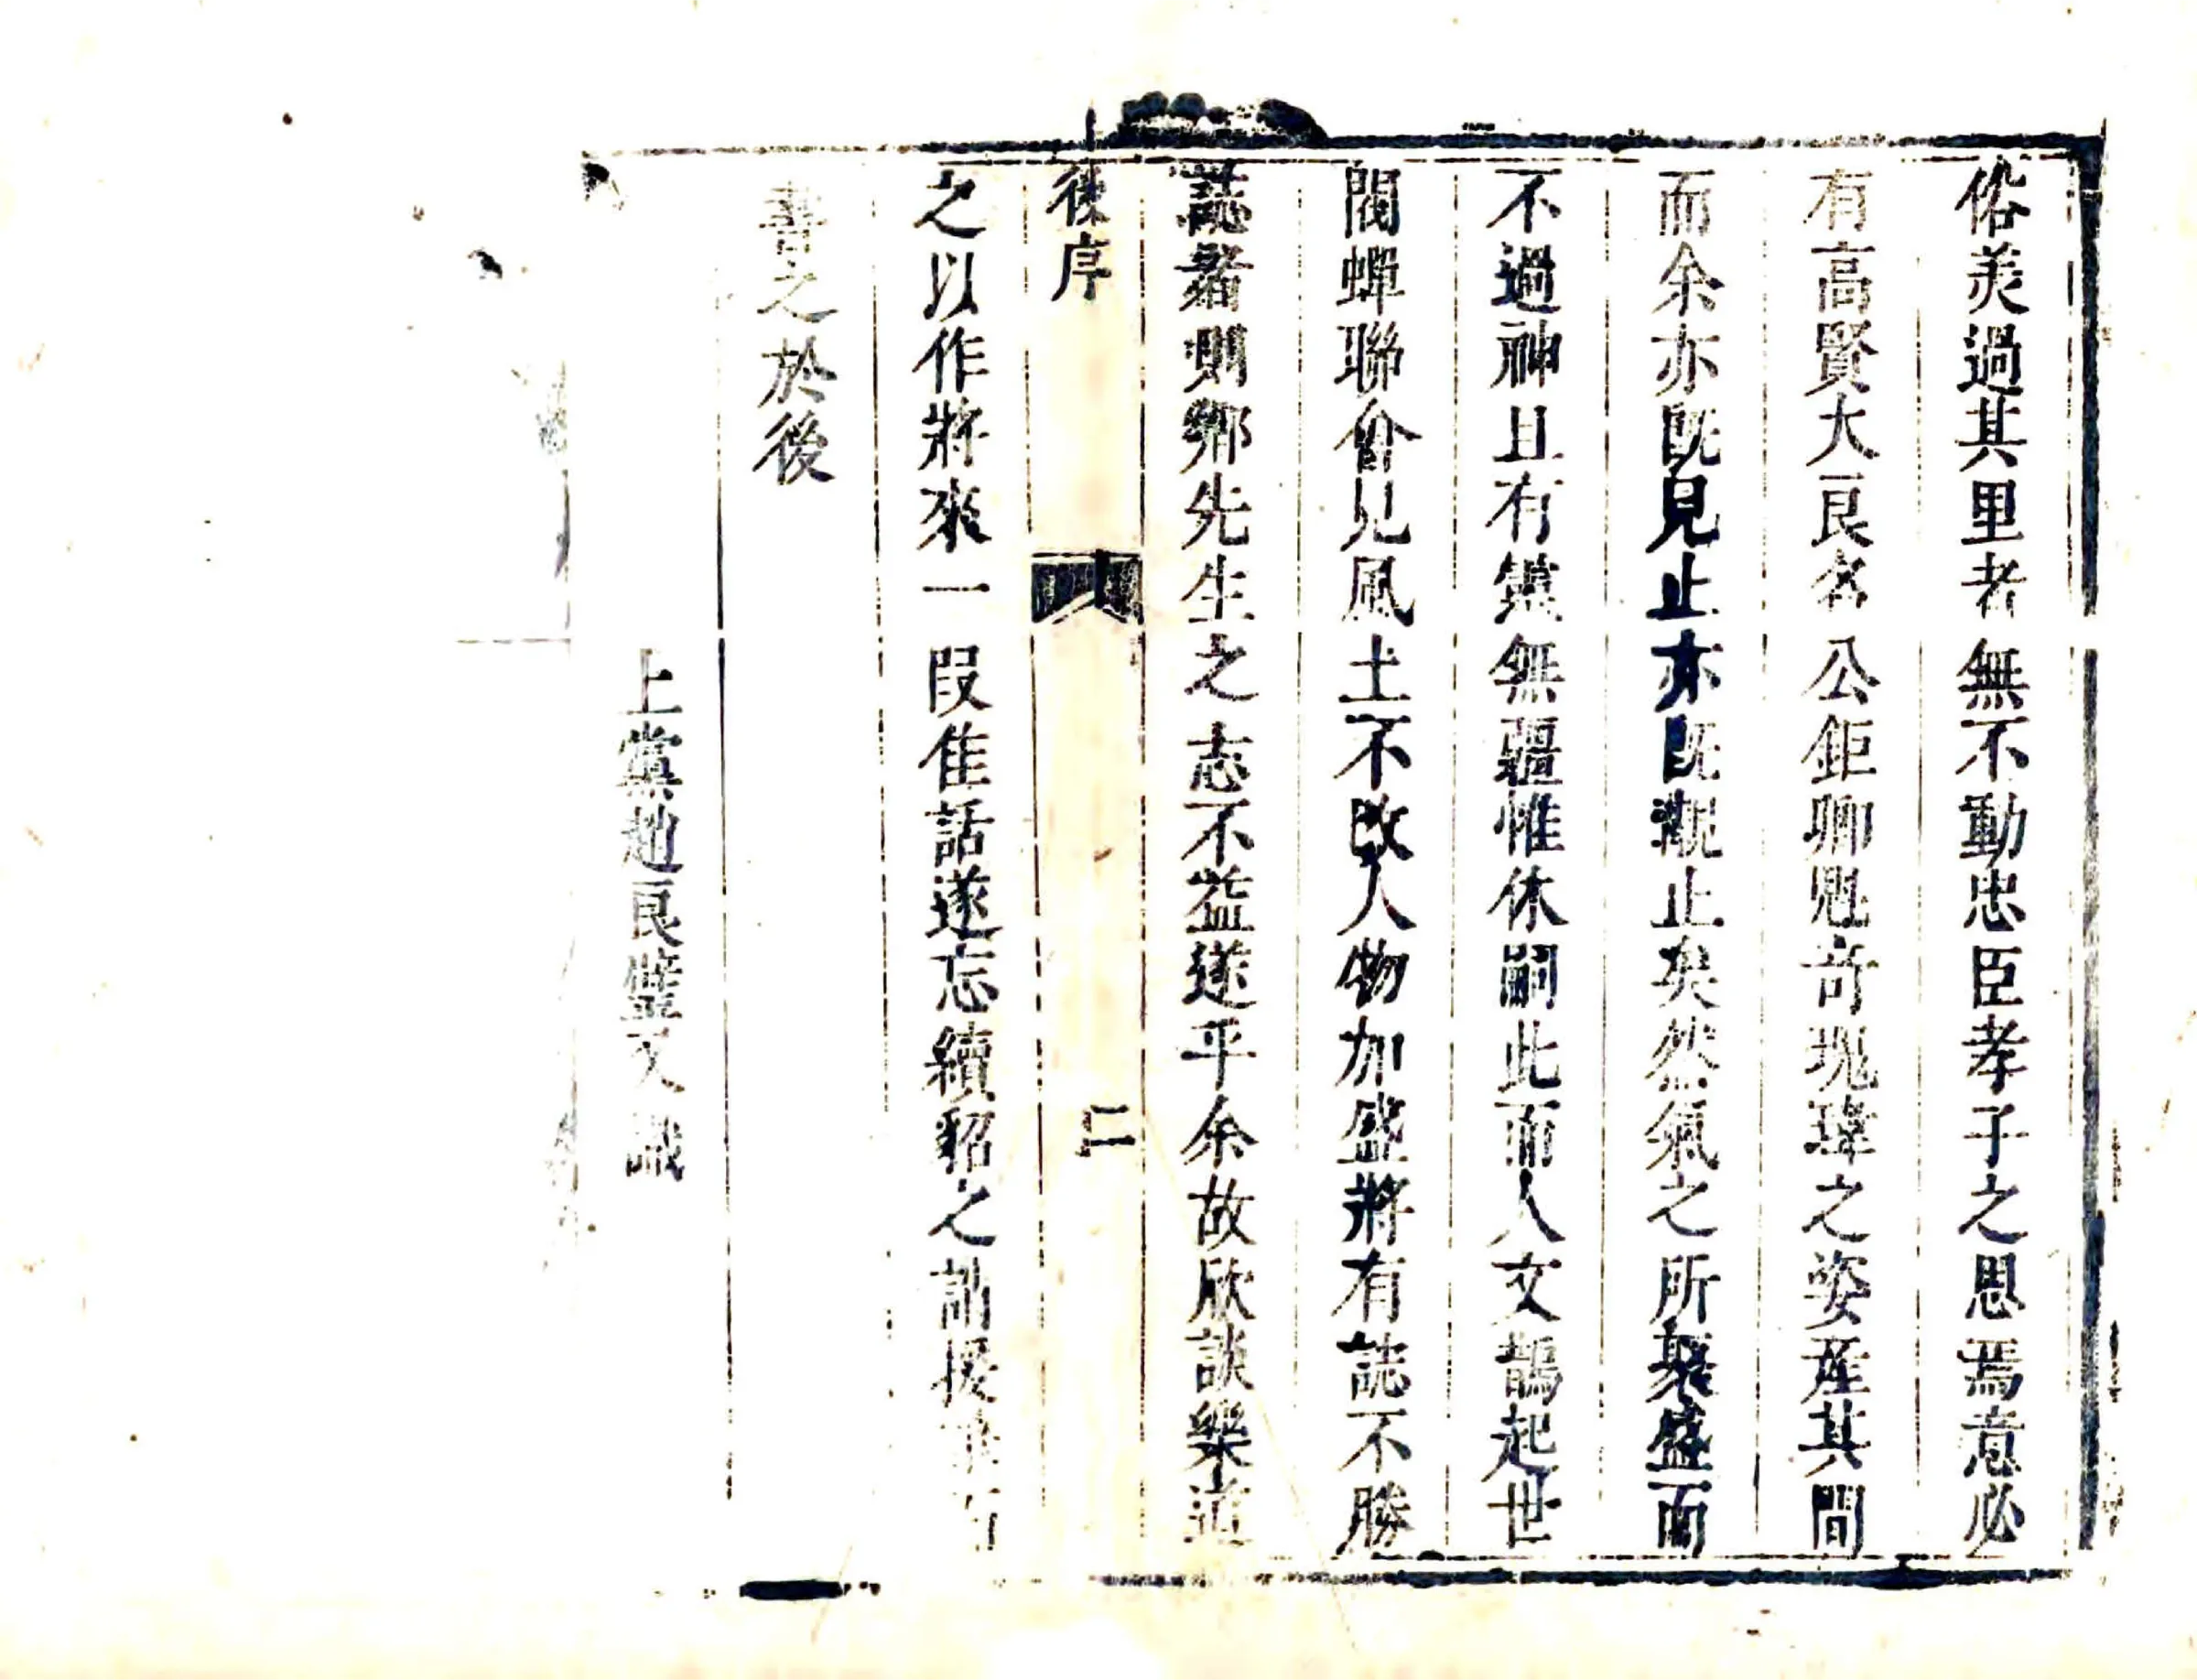 俗美過其里者無不動忠臣孝子之思焉意必
有高賢大良名公鉅卿魁奇瑰瑋之姿產其間
而余亦既見止亦既觀止矣然氣之所聚盛而
不過神且有無疆惟休嗣此而人文鵲起世
閥蟬聯會見風土不改人物加盛將有誌不勝
誌者則鄉先生之志不益遂乎余故欣談樂道
後序
二
之以作將來一段佳話遂忘續貂之誚援筆而
書之於後
上黨趙良璧又識